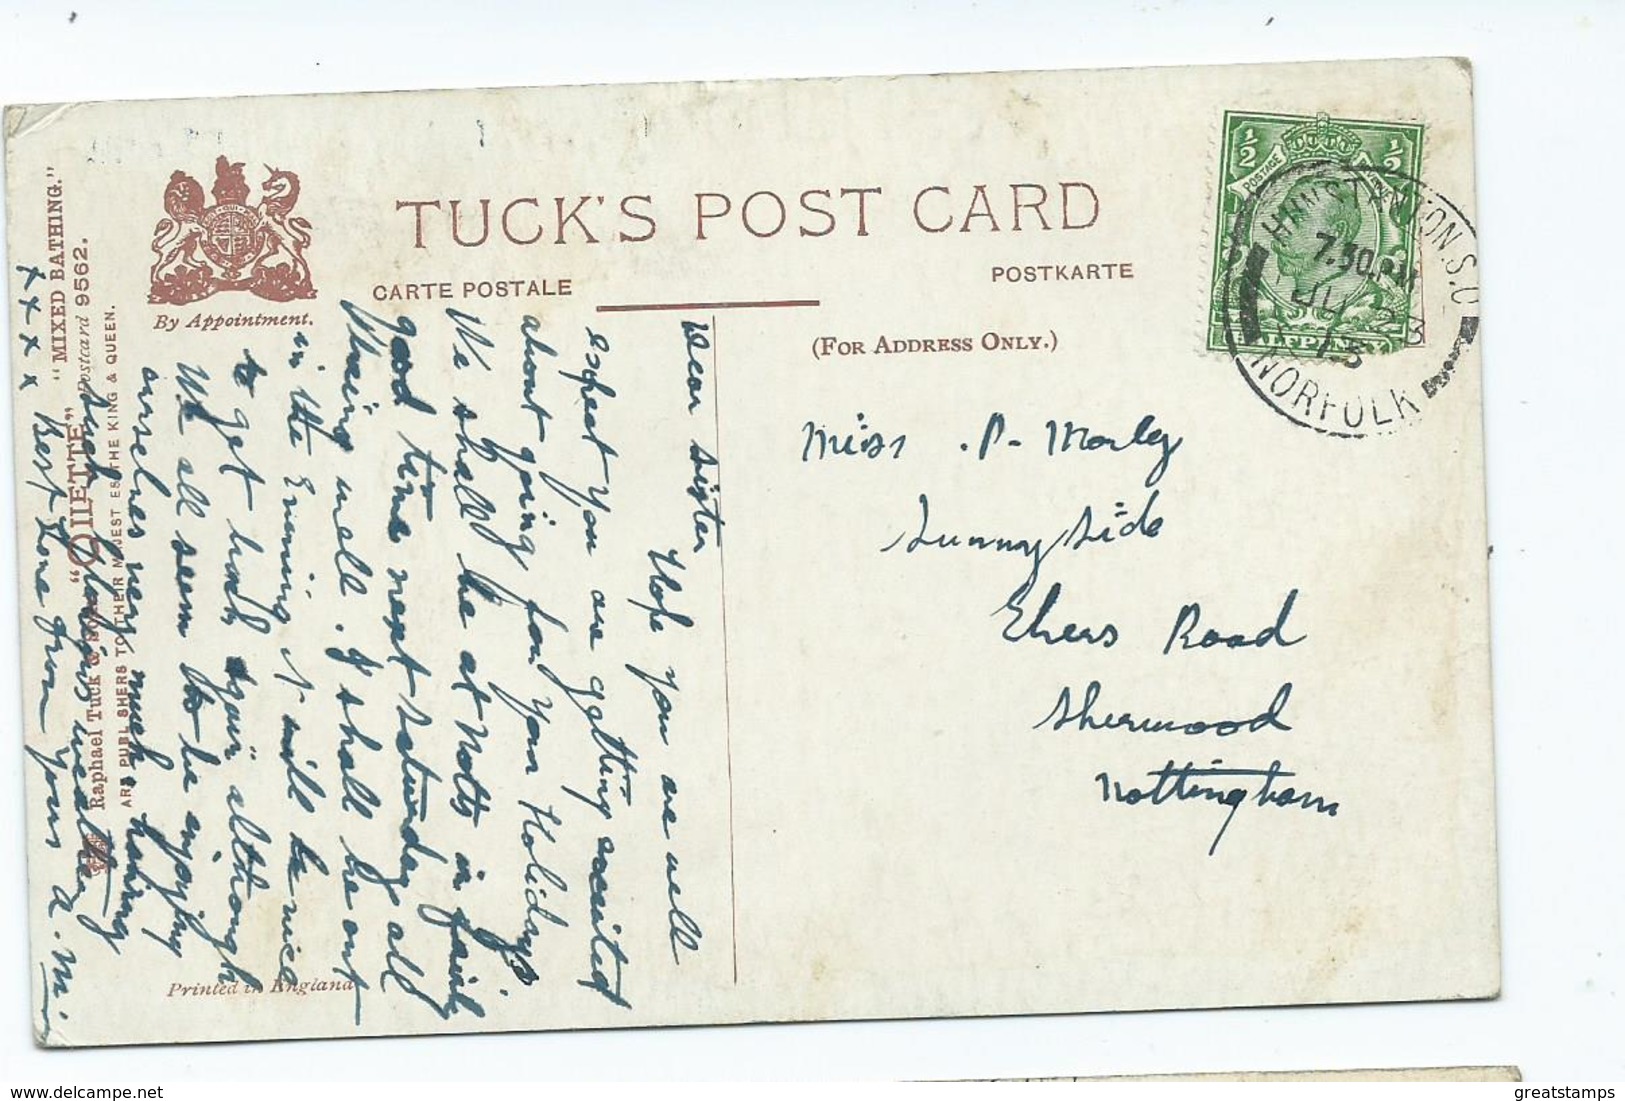 TUCK'S POST CARD
CARTE POSTALE
POSTKARTE
(FOR ADDRESS ONLY.)
By Appointment.
"MIXED BATHING."
"OILETTE" Postcard 9562.
Raphael Tuck & Sons
ART PUBLISHERS TO THEIR MAJESTIES THE KING & QUEEN.
Printed in England
½ ½
POSTAGE
HALFPENNY
HUNSTANTON.S.O
7.30.PM
JU 23
13
NORFOLK
Miss . P. Morley
Sunny Side
Ebers Road
Sherwood
Nottingham
Dear Sister
Hope you are well
expect you are getting excited
about going for your Holidays
We shall be at Notts in fairly
good time next Saturday all
being well. I shall be out
in the Evening it will be nice
to get back again although
We all seem to be enjoying
ourselves very much having
such glorious weather
x x x x Best Love from Yours A. M.
greatstamps